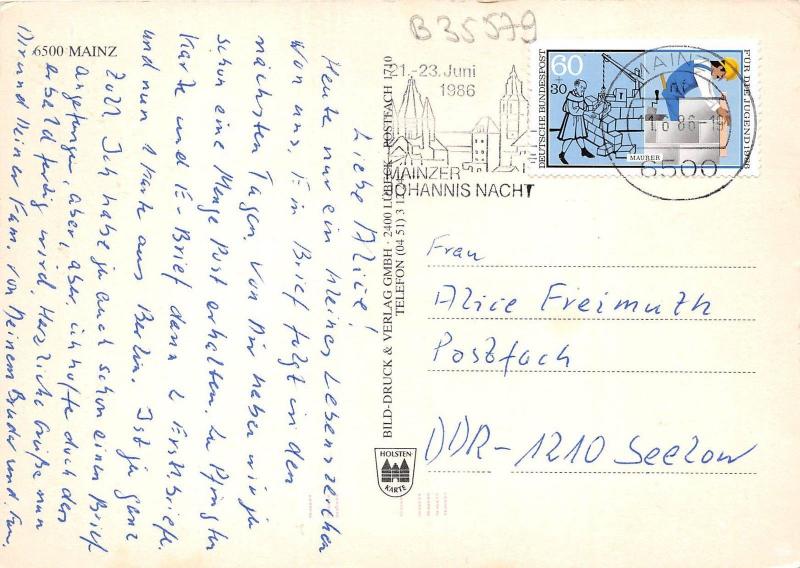 B 35579
6500 MAINZ
21.-23. Juni
1986
MAINZER
JOHANNIS NACHT
60
+30
DEUTSCHE BUNDESPOST
FÜR DIE JUGEND 1986
MAURER
MAINZ
6500
Liebe Alice!
Heute nur ein kleines Lebenszeichen
von uns. E in Brief folgt in den
nächsten Tagen. Von Dir haben wir ja
schon eine Menge Post erhalten. Zu Pfingsten
Karte und E-Brief dann 2 Erstbriefe
und nun 1 Karte aus Berlin. Ist ja ganz
toll. Ich habe ja auch schon einen Brief
angefangen, aber, aber. ich hoffe doch das
er bald fertig wird. Herzliche Grüße nun
Dir und Deiner Fam. von Deinem Bruder und Fam.
BILD-DRUCK & VERLAG GMBH · 2400 LÜBECK · POSTFACH 1710
TELEFON (04 51) 3 12
HOLSTEN
KARTE
Frau
Alice Freimuth
Postfach
DDR-1210 Seelow